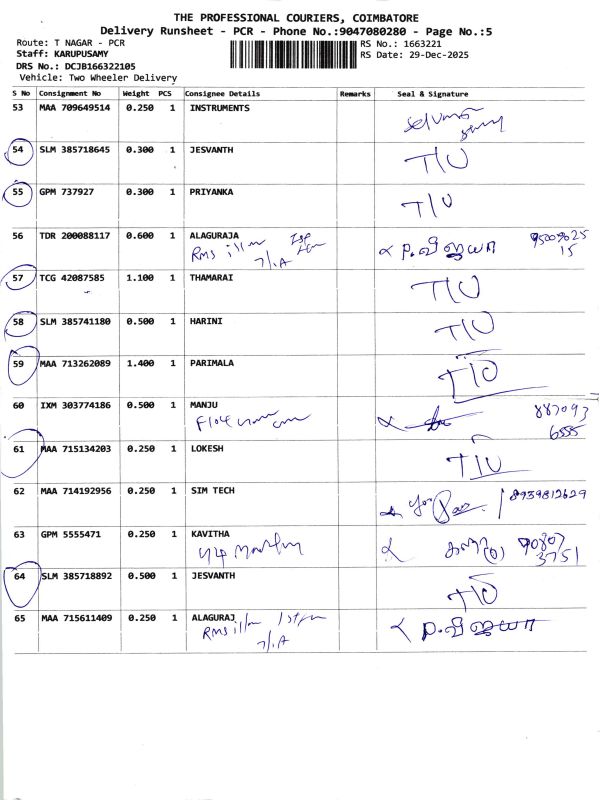 THE PROFESSIONAL COURIERS, COIMBATORE
Delivery Runsheet - PCR - Phone No.:9047080280 - Page No.:5
Route: T NAGAR - PCR RS No.: 1663221
Staff: KARUPUSAMY RS Date: 29-Dec-2025
DRS No.: DCJB166322105
Vehicle: Two Wheeler Delivery
S No Consignment No Weight PCS Consignee Details Remarks Seal & Signature
53 MAA 709649514 0.250 1 INSTRUMENTS
54 SLM 385718645 0.300 1 JESVANTH T/U
55 GPM 737927 0.300 1 PRIYANKA T/U
56 TDR 200088117 0.600 1 ALAGURAJA
RMS 7/A P.விஜயா
15
57 TCG 42087585 1.100 1 THAMARAI T/U
58 SLM 385741180 0.500 1 HARINI T/U
59 MAA 713262089 1.400 1 PARIMALA T/U
60 IXM 303774186 0.500 1 MANJU 887093
6555
61 MAA 715134203 0.250 1 LOKESH T/U
62 MAA 714192956 0.250 1 SIM TECH 8939812629
63 GPM 5555471 0.250 1 KAVITHA 90807
3751
64 SLM 385718892 0.500 1 JESVANTH T/U
65 MAA 715611409 0.250 1 ALAGURAJ
RMS 7/A P.விஜயா